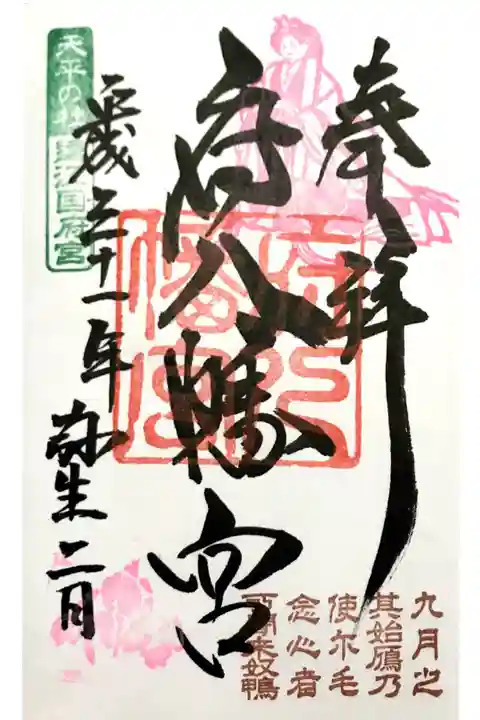 奉拝
府八幡宮
平成三十一年弥生二日
天平の社 遠江国府宮
府八幡宮
九月之
其始鴈乃
使尓毛
念心者
可聞来奴鴨